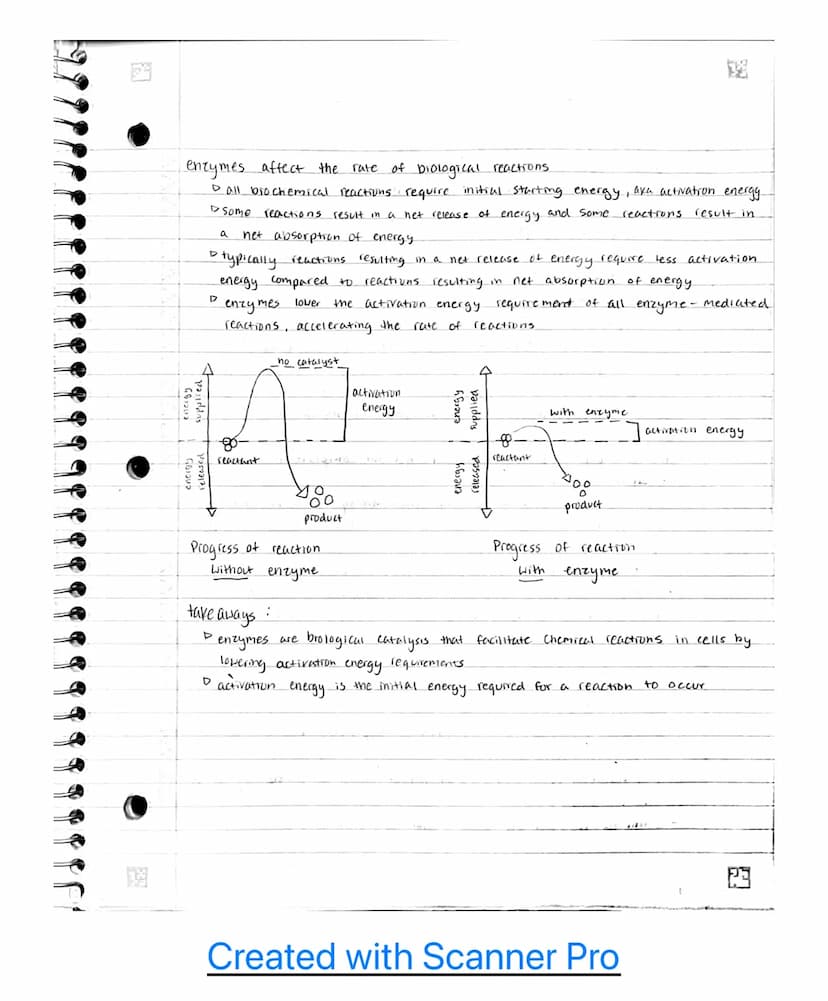 enzymes affect the rate of biological reactions
all biochemical reactions require initial starting energy, aka activation energy
some reactions result in a net release of energy and some reactions result in
a net absorption of energy
typically reactions resulting in a net release of energy require less activation
energy compared to reactions resulting in net absorption of energy
enzymes lower the activation energy requirement of all enzyme-mediated
reactions, accelerating the rate of reactions
no catalyst
energy supplied
activation
energy
reactant
energy released
product
energy supplied
with enzyme
activation energy
reactant
energy released
product
Progress of reaction
without enzyme
Progress of reaction
with enzyme
take aways:
enzymes are biological catalysis that facilitate chemical reactions in cells by
lowering activation energy requirements
activation energy is the initial energy required for a reaction to occur
Created with Scanner Pro